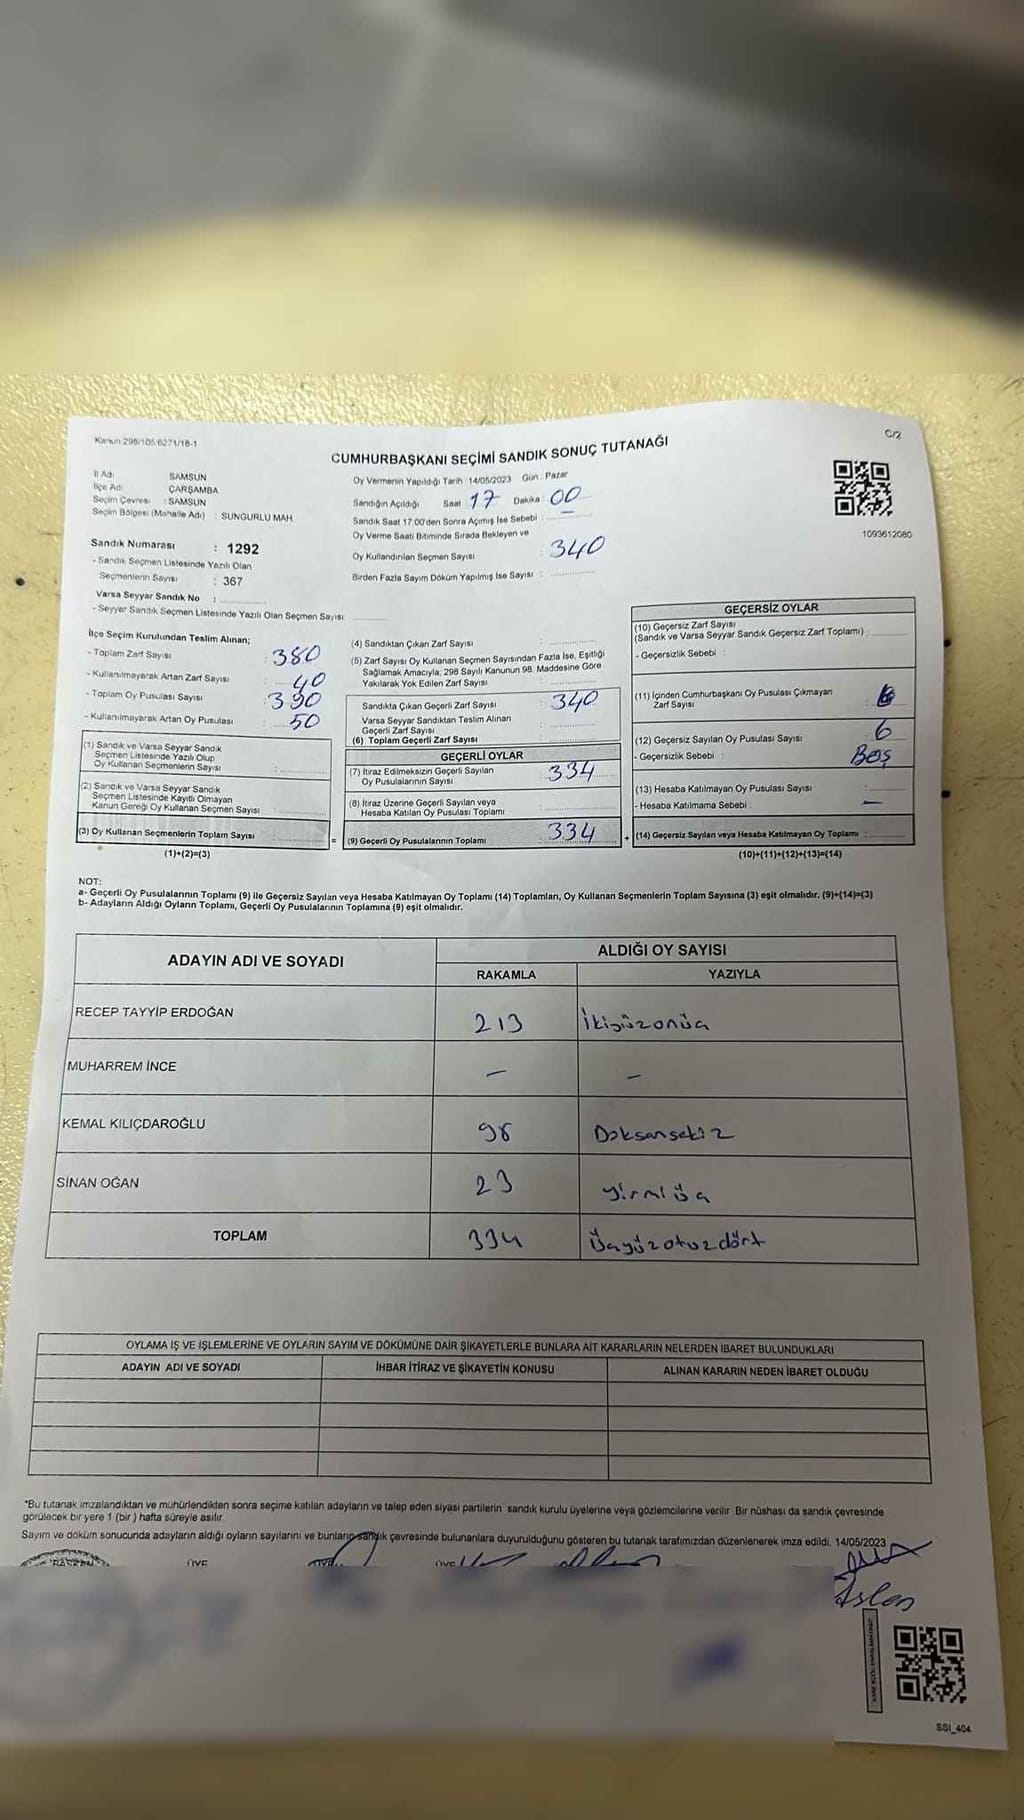 Kanun 298/105.6271/18-1
C/2
CUMHURBAŞKANI SEÇİMİ SANDIK SONUÇ TUTANAĞI
İl Adı SAMSUN
İlçe Adı ÇARŞAMBA
Seçim Çevresi : SAMSUN
Seçim Bölgesi (Mahalle Adı) : SUNGURLU MAH.
Sandık Numarası : 1292
- Sandık Seçmen Listesinde Yazılı Olan
Seçmenlerin Sayısı : 367
Varsa Seyyar Sandık No :
- Seyyar Sandık Seçmen Listesinde Yazılı Olan Seçmen Sayısı
Oy Vermenin Yapıldığı Tarih : 14/05/2023 Gün : Pazar
Sandığın Açıldığı Saat 17 Dakika : 00
Sandık Saat 17:00'den Sonra Açımış İse Sebebi : —
Oy Verme Saati Bitiminde Sırada Bekleyen ve
Oy Kullandırılan Seçmen Sayısı : 340
Birden Fazla Sayım Döküm Yapılmış İse Sayısı :
1093612080
İlçe Seçim Kurulundan Teslim Alınan;
- Toplam Zarf Sayısı : 380
- Kullanılmayarak Artan Zarf Sayısı : 40
- Toplam Oy Pusulası Sayısı : 390
- Kullanılmayarak Artan Oy Pusulası : 50
(1) Sandık ve Varsa Seyyar Sandık
Seçmen Listesinde Yazılı Olup
Oy Kullanan Seçmenlerin Sayısı :
(2) Sandık ve Varsa Seyyar Sandık
Seçmen Listesinde Kayıtlı Olmayan
Kanun Gereği Oy Kullanan Seçmen Sayısı :
(3) Oy Kullanan Seçmenlerin Toplam Sayısı :
(1)+(2)=(3)
(4) Sandıktan Çıkan Zarf Sayısı :
(5) Zarf Sayısı Oy Kullanan Seçmen Sayısından Fazla İse, Eşitliği
Sağlamak Amacıyla; 298 Sayılı Kanunun 98. Maddesine Göre
Yakılarak Yok Edilen Zarf Sayısı :
Sandıkta Çıkan Geçerli Zarf Sayısı : 340
Varsa Seyyar Sandıktan Teslim Alınan
Geçerli Zarf Sayısı :
(6) Toplam Geçerli Zarf Sayısı :
GEÇERLİ OYLAR
(7) İtiraz Edilmeksizin Geçerli Sayılan
Oy Pusulalarının Sayısı : 334
(8) İtiraz Üzerine Geçerli Sayılan veya
Hesaba Katılan Oy Pusulası Toplamı :
= (9) Geçerli Oy Pusulalarının Toplamı : 334
GEÇERSİZ OYLAR
(10) Geçersiz Zarf Sayısı
(Sandık ve Varsa Seyyar Sandık Geçersiz Zarf Toplamı) :
- Geçersizlik Sebebi :
(11) İçinden Cumhurbaşkanı Oy Pusulası Çıkmayan
Zarf Sayısı :
(12) Geçersiz Sayılan Oy Pusulası Sayısı : 6
- Geçersizlik Sebebi : Boş
(13) Hesaba Katılmayan Oy Pusulası Sayısı :
- Hesaba Katılmama Sebebi : —
+ (14) Geçersiz Sayılan veya Hesaba Katılmayan Oy Toplamı :
(10)+(11)+(12)+(13)=(14)
NOT:
a- Geçerli Oy Pusulalarının Toplamı (9) ile Geçersiz Sayılan veya Hesaba Katılmayan Oy Toplamı (14) Toplamları, Oy Kullanan Seçmenlerin Toplam Sayısına (3) eşit olmalıdır. (9)+(14)=(3)
b- Adayların Aldığı Oyların Toplamı, Geçerli Oy Pusulalarının Toplamına (9) eşit olmalıdır.
ADAYIN ADI VE SOYADI ALDIĞI OY SAYISI
RAKAMLA YAZIYLA
RECEP TAYYİP ERDOĞAN 213 İkiyüzonüç
MUHARREM İNCE — —
KEMAL KILIÇDAROĞLU 98 Doksansekiz
SİNAN OĞAN 23 yirmiüç
TOPLAM 334 Üçyüzotuzdört
OYLAMA İŞ VE İŞLEMLERİNE VE OYLARIN SAYIM VE DÖKÜMÜNE DAİR ŞİKAYETLERLE BUNLARA AİT KARARLARIN NELERDEN İBARET BULUNDUKLARI
ADAYIN ADI VE SOYADI İHBAR İTİRAZ VE ŞİKAYETİN KONUSU ALINAN KARARIN NEDEN İBARET OLDUĞU
*Bu tutanak imzalandıktan ve mühürlendikten sonra seçime katılan adayların ve talep eden siyasi partilerin sandık kurulu üyelerine veya gözlemcilerine verilir. Bir nüshası da sandık çevresinde
görülecek bir yere 1 (bir) hafta süreyle asılır.
Sayım ve döküm sonucunda adayların aldığı oyların sayılarını ve bunların sandık çevresinde bulunanlara duyurulduğunu gösteren bu tutanak tarafımızdan düzenlenerek imza edildi. 14/05/2023
BAŞKAN ÜYE ÜYE ÜYE
Aslan
SSI_404